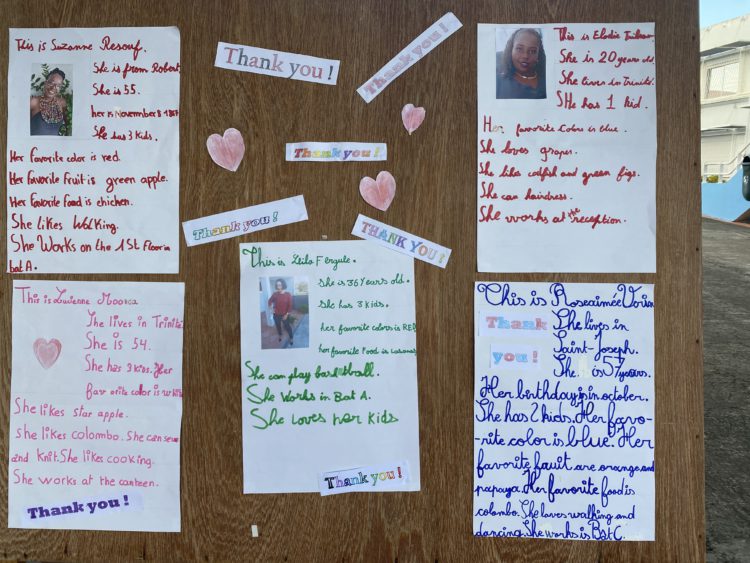 This is Suzanne Resouf.
She is from Robert.
She is 55.
her is November 8 1967
She has 3 kids.
Her favorite color is red.
Her favorite Fruit is green apple.
Her favorite Food is chicken.
She likes Walking.
She Works on the 1st Floor in
bat A.
Thank you !
Thank you !
Thank you !
Thank you !
THANK YOU !
This is Elodie
She is 20 years old.
She lives in Trinité.
SHe has 1 kid.
Her favorite colors is blue.
She loves grapes.
She like codfish and green figs.
She can hairdress.
She works at the reception.
This is Lucienne
She lives in Trinité
She is 54.
She has 3 kids. Her
favorite color is
She likes star apple.
she likes colombo. She can sew
and knit. She likes cooking.
She works at the canteen.
Thank you !
This is Leila Fergule.
She is 36 Years old.
She has 3 kids.
her favorite colors is RED
her favorite Food is
She can play basketball.
She Works in Bat A.
She loves her kids
Thank you !
This is Roseaimée
Thank
you !
She lives in
Saint-Joseph.
She is 57 years.
Her birthday is in october.
She has 2 kids. Her favo-
-rite color is blue. Her
favorite fruit are orange and
papaya. Her favorite food is
colombo. She loves walking and
dancing. She works is Bat C.